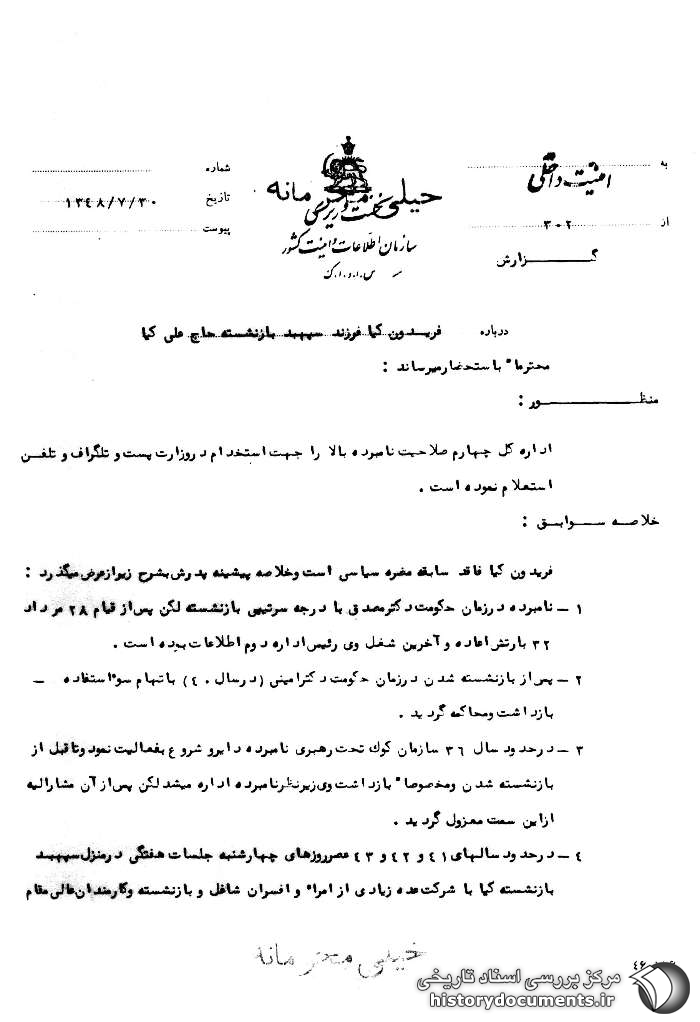 به امنیت داخلی
از ۳۰۲
گـــــزارش
خیلی محرمانه
نخست وزیری
سازمان اطلاعات و امنیت کشور
س.ا.و.ا.ک
شماره
تاریخ ۱۳۴۸/۷/۳۰
پیوست
درباره فریدون کیا فرزند سپهبد بازنشسته حاج علی کیا
محترماً باستحضار میرساند :
منظـــــور :
اداره کل چهارم صلاحیت نامبرده بالا را جهت استخدام در وزارت پست و تلگراف و تلفن
استعلام نموده است .
خلاصه ســـوابـق :
فریدون کیا فاقد سابقه مضره سیاسی است وخلاصه پیشینه پدرش بشرح زیر از عرض میگذرد :
۱ ــ نامبرده در زمان حکومت دکتر مصدق با درجه سرتیپی بازنشسته لکن پس از قیام ۲۸ مرداد
۳۲ بارتش اعاده و آخرین شغل وی رئیس اداره دوم اطلاعات بوده است .
۲ ــ پس از بازنشسته شدن در زمان حکومت دکتر امینی (در سال ۴۰) باتهام سوء استفاده ــ
بازداشت ومحاکمه گردید .
۳ ــ در حدود سال ۳۶ سازمان کوک تحت رهبری نامبرده دایر و شروع بفعالیت نمود وتا قبل از
بازنشسته شدن ومخصوصاً بازداشت وی زیرنظر نامبرده اداره میشد لکن پس از آن مشارالیه
از این سمت معزول گردید .
۴ ــ در حدود سالهای ۴۱ و ۴۲ و ۴۳ عصر روزهای چهارشنبه جلسات هفتگی در منزل سپهبد
بازنشسته کیا با شرکت عده زیادی از امراء و افسران شاغل و بازنشسته وکارمندان عالی مقام
خیلی محرمانه
مرکز بررسی اسناد تاریخی
historydocuments.ir